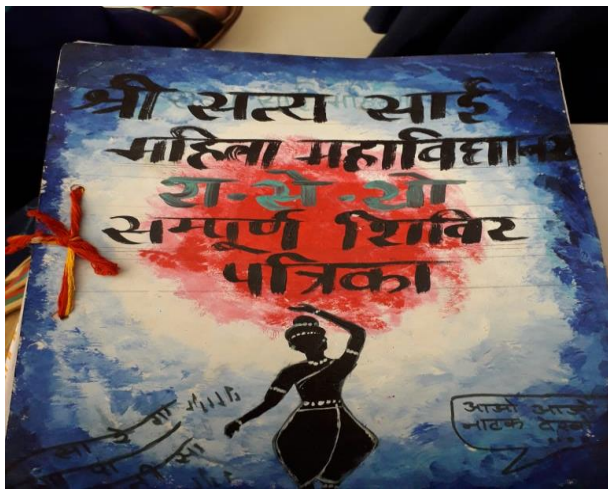 श्री सत्य साई
महिला महाविद्यालय
रा-से-यो
सम्पूर्ण शिविर
पत्रिका
आओ आओ
नाटक देखो
सा रे गा